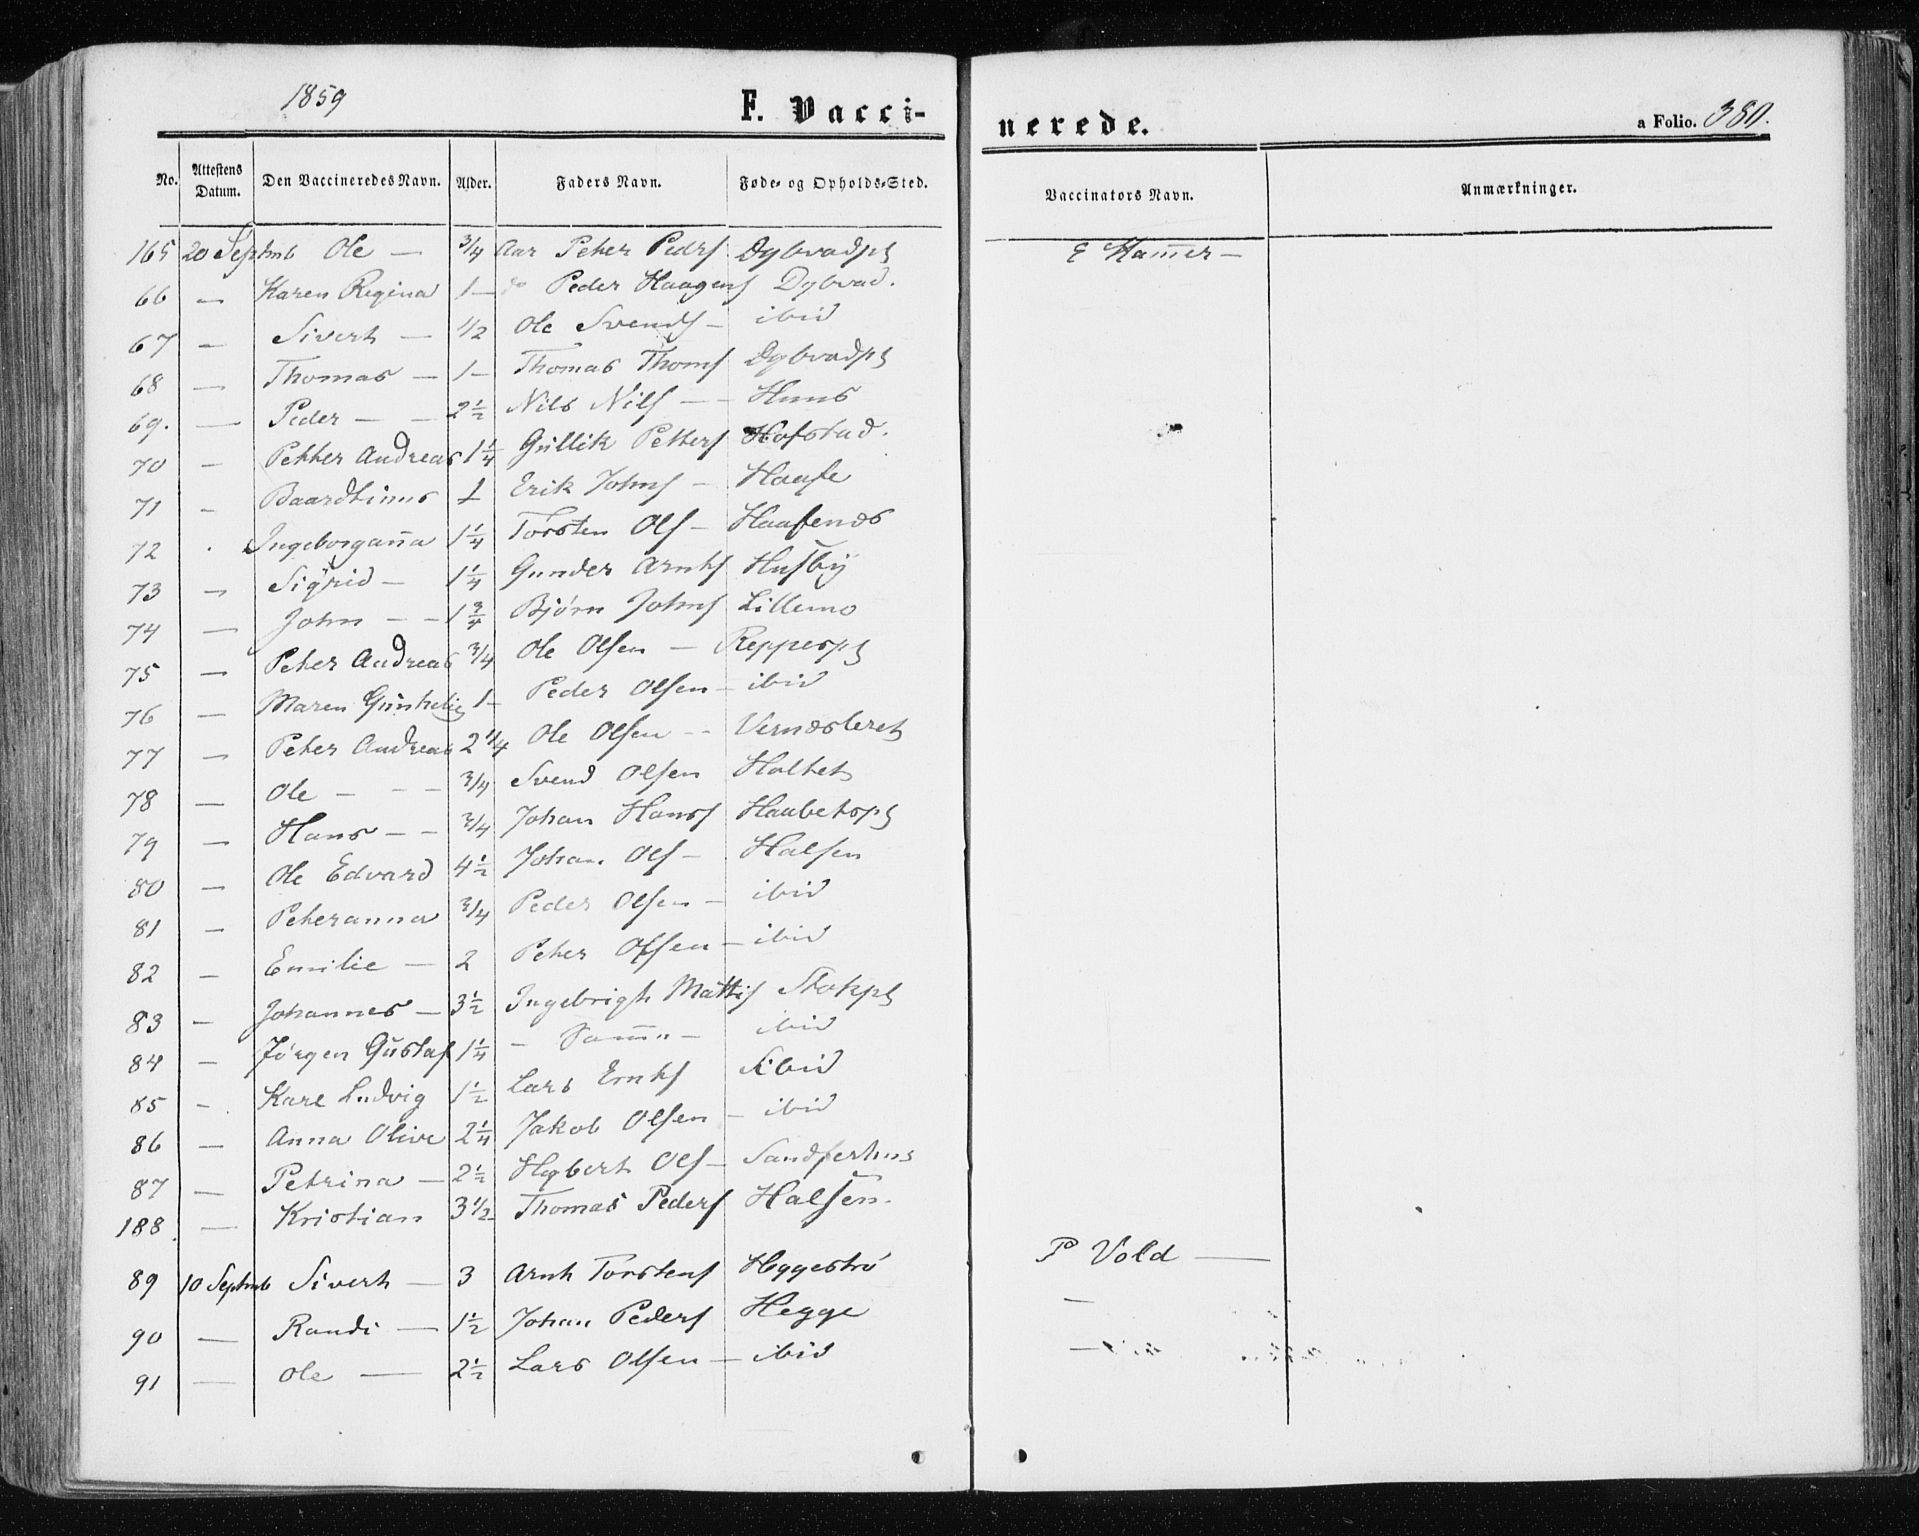 1859
F. Vacci-
nerede.
a Folio. 380.
No. Attestens Datum. Den Vaccineredes Navn. Alder. Faders Navn. Føde- og Opholds-Sted. Vaccinators Navn. Anmærkninger.
165 20 Septmb Ole — 3/4 Aar Peter Peders Dybvadpl E Hamer —
66 — Karen Regina 1 — do Peder Haagens Dybvad.
67 — Sivert — 1/2 Ole Svends — ibid
68 — Thomas — 1 — Thomas Thoms Dybvadpl
69. — Peder — — 2 1/2 Nils Nils — — Huus
70 — Petter Andreas 1 1/4 Gullik Petters Hofstad.
71 — Baardtinus 1 Erik Johns — Haase
72 . Ingeborganna 1 1/4 Torsten Ols — Haasenæs
73 — Sigrid — 1 1/4 Gunder Arnts Husby
74 — John — — 1 3/4 Bjørn Johns Lillemo
75 — Peter Andreas 3/4 Ole Olsen — Reppespl
76 — Maren 1 — Peder Olsen — ibid
77 — Peter Andreas 2 1/4 Ole Olsen — — Vernæsleret
78 — Ole — — — 3/4 Svend Olsen Holtet
79 — Hans — — 3/4 Johan Hans Haabetspl
80 — Ole Edvard 4 1/2 Johan Ols — Halsen
81 — Peteranna 3/4 Peder Olsen — ibid
82 — Emilie — 2 Peter Olsen — ibid
83 — Johannes — 3 1/2 Ingebrigt Mattis Stokpl
84 — Jørgen Gustaf 1 1/4 — Samme — ibid
85 — Karl Ludvig 1 1/2 Lars Ernts ibid
86 — Anna Olive 2 1/4 Jakob Olsen — ibid
87 — Petrina — 2 1/2 Ols —
188 — Kristian 3 1/2 Thomas Peders Halsen.
89 10 Septmb Sivert — 3 Arnt Torstens Heggestrø P Vold —
90 — Randi — 1 1/2 Johan Peders Hegge —
91 — Ole — 2 1/2 Lars Olsen — ibid —